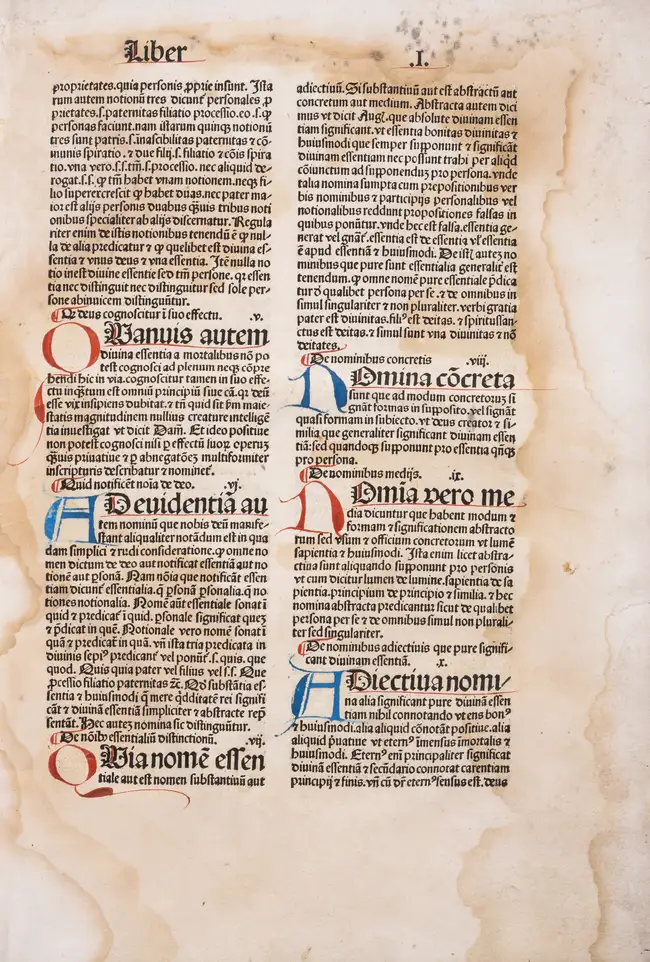 Liber
.I.
ꝓprietates. quia personis ꝓprie insunt. Ista
rum autem notionū tres dicunt̃ personales ꝓ
prietates .s. paternitas filiatio processio. eo .s. ꝙ
personas faciunt. nam istarum quinqꝫ notionū
tres sunt patris .s. inascibilitas paternitas ⁊ cō
munis spiratio. ⁊ due filij .s. filiatio ⁊ cōis spira
tio. vna vero .s. s. tm̄ .s. processio. nec aliquid de
rogat .s. s. ꝙ tm̄ habet vnam notionem. neqꝫ fi
lio superexcrescit ꝙ habet duas. nec pater ma
ior est alijs personis duabꝰ quis tribus noti
onibus specialiter ab alijs discernatur. Regula
riter enim de istis notionibus tenendū ē ꝙ nul
la de alia predicatur ⁊ ꝙ quelibet est diuina es
sentia ⁊ vnus deus ⁊ vna essentia. Itē nulla no
tio inest diuine essentie sed tm̄ persone. qꝛ essen
tia nec distinguit nec distinguitur sed sole per
sone abinuicem distinguūtur.
¶ Qꝛ deus cognoscitur ī suo effectu. .v.
QVanuis autem
diuina essentia a mortalibus nō po
test cognosci ad plenum neqꝫ cōpre
hendi hic in via. cognoscitur tamen in suo effe
ctu inqͣtum est omniū principiū siue cā. qꝛ deū
esse vix insipiens dubitat. ⁊ tn̄ quid sit ꝑm maie-
statis magnitudinem nullius creature intelligē
tia inuestigat vt dicit Dam̄. Et ideo positiue
non potest cognosci nisi ꝑ effectū suoꝝ operuꝫ
qͣuis priuatiue ⁊ ꝑ abnegatōeꝫ multiformiter
in scripturis describatur ⁊ nominet̃.
¶ Quid notificēt noīa de deo. .vj.
AD euidentiā au
tem nominū que nobis deū manife-
stant aliqualiter notādum est in qua
dam simplici ⁊ rudi consideratione. ꝙ omne no
men dictum de deo aut notificat essentiā aut no
tionē aut ꝑsonā. Nam nōia que notificāt essen
tiam dicunt̃ essentialia. q̄ ꝑsonā ꝑsonalia. q̄ no
tiones notionalia. Nomē aūt essentiale sonat ī
quid ⁊ predicat̃ ī quid. ꝑsonale significat queꝫ
⁊ p̄dicat in quē. Notionale vero nomē sonat ī
quā ⁊ predicat̃ in quā. vn̄ ista tria predicata in
diuinis sepiꝰ predicant̃ vel ponūt̃ .s. quis. que
quod. Quis quia pater vel filius vel s. s. Que
ꝓcessio filiatio paternitas ⁊c. Qd̓ substātia es-
sentia ⁊ huiusmodi q̄ mere qͥdditatē rei signifi
cāt ⁊ diuinā essentiā simpliciter ⁊ abstracte rep̄
sentāt. Hec auteꝫ nomina sic distinguūtur.
¶ De nōībꝰ essentialiū distinctionū. .vij.
QVia nomē essen
tiale aut est nomen substantiuū aut
adiectiuū. Si substantiuū aut est abstractū aut
concretum aut medium. Abstracta autem dici
mus vt dicit Augꝰ. que absolute diuinam essen
tiam significant. vt essentia bonitas diuinitas ⁊
huiusmodi que semper supponunt ⁊ significāt
diuinam essentiam nec possunt trahi per aliqͥd
cōiunctum ad supponenduꝫ pro persona. vnde
talia nomina sumpta cum prepositionibus ver
bis nominibus ⁊ participijs personalibus vel
notionalibus reddunt propositiones falsas in
quibus ponūtur. vnde hec est falsa. essentia ge-
nerat vel gnāt̃. essentia est de essentia vl̓ essentia
ē apud essentiā ⁊ huiusmodi. De istꝭ auteꝫ no
minibus que pure sunt essentialia generalit̓ est
tenendum. ꝙ omne nomē pure essentiale p̄dica
tur d̓ qualibet persona per se. ⁊ de omnibus in
simul singulariter ⁊ non pluraliter. verbi gratia
pater est diuinitas. filiꝰ est deitas. ⁊ spiritussan-
ctus est deitas. ⁊ simul sunt vna diuinitas ⁊ nō
deitates.
¶ De nominibus concretis .viij.
NOmina cōcreta
sunt que ad modum concretoruꝫ si
gnāt formas in supposito. vel signāt
quasi formam in subiecto. vt deus creator ⁊ si-
milia que generaliter significant diuinam essen
tiā: sed quandoqꝫ supponunt pro essentia qn̄qꝫ
pro persona.
¶ De nominibus medijs. .ix.
NOmīa vero me
dia dicuntur que habent modum ⁊
formam ⁊ significationem abstracto
rum sed vsum ⁊ officium concretorum vt lumē
sapientia ⁊ huiusmodi. Ista enim licet abstra-
cta sint aliquando supponunt pro personis
vt cum dicitur lumen de lumine. sapientia de sa
pientia. principium de principio ⁊ similia. ⁊ hec
nomina abstracta predicantur sicut de qualibet
persona per se ⁊ de omnibus simul non plurali-
ter sed singulariter.
¶ De nominibus adiectiuis que pure signifi-
cant diuinam essentiā. .x.
ADiectiua nomi-
na alia significant pure diuinā essen
tiam nihil connotando vt ens bonꝰ
⁊ huiusmodi. alia aliquid cōnotāt positiue. alia
aliquid p̄uatiue vt eternꝰ īmensus īmortalis ⁊
huiusmodi. Eternꝰ enī principaliter significat
diuinā essentiā ⁊ secūdario connotat carentiam
principij ⁊ finis. vn̄ cū dr̄ eternꝰ sensus est. deus